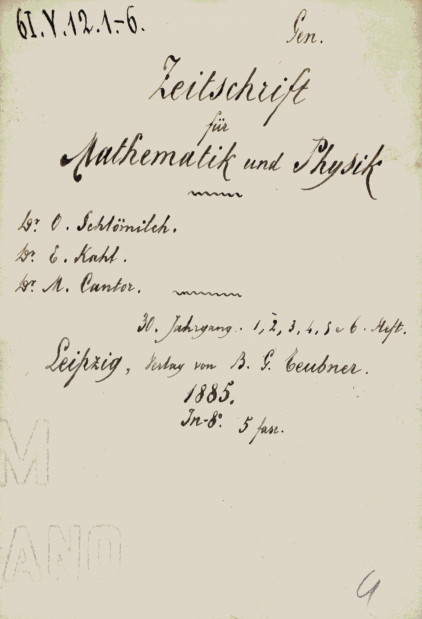 61.V.12.1.-6.
Gen.
Zeitschrift
für
Mathematik und Physik
Dr. O. Schlömilch.
Dr. E. Kahl.
Dr. M. Cantor.
30. Jahrgang. 1, 2, 3, 4, 5 e 6. Heft.
Leipzig, Verlag von B. G. Teubner.
1885.
In-8°. 5 fasc.
M
ANO